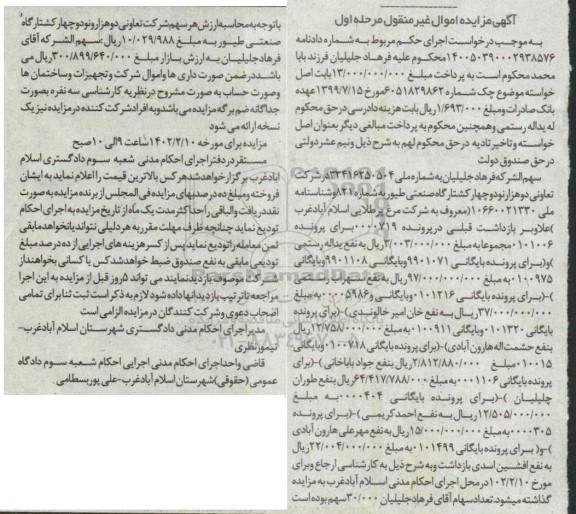 آگهی مزایده اموال غیر منقول مرحله اول
به موجب درخواست اجرای حکم مربوط به شماره دادنامه
۱۴۰۰۵۰۳۹۰۰۰۲۹۳۸۵۷۶ محکوم علیه فرهاد جلیلیان فرزند بابا
محمد محکوم است به پرداخت مبلغ ۱۳/۰۰۰/۰۰۰/۰۰۰ بابت اصل
خواسته موضوع چک شماره ۶۰۵۱۸۲۹۸۶۲ مورخ ۱۳۹۹/۷/۱۵ عهده
بانک صادرات ومبلغ ۱/۶۹۳/۰۰۰/۰۰۰ ریال بابت هزینه دادرسی در حق محکوم
له یداله رستمی وهمچنین محکوم به پرداخت مبالغی دیگر بعنوان اصل
خواسته و تاخیر تادیه در حق محکوم لهم به شرح ذیل ونیم عشر دولتی
در حق صندوق دولت
سهم الشرکه فرهاد جلیلیان به شماره ملی ۳۳۴۱۶۲۵۰۵۰۴ در شرکت
تعاونی دوهزارنودوچهار کشتارگاه صنعتی طیور به شماره ۸۲۱ وشناسنامه
ملی ۱۰۶۶۰۰۲۱۳۳۰ (معروف به شرکت مرغ پرطلایی اسلام آبادغرب
)علاوبر بازداشت قبلی در پرونده ۰۰۰۰۷۱۹ برای پرونده
۰۱۰۱۰۰۶ مجموعا به مبلغ ۳/۰۰۳/۰۰۰/۰۰۰ ریال به نفع یداله رستمی
)و(برای پرونده بایگانی ۹۹۰۱۰۷۱ وبایگانی ۹۹۰۱۱۰۸ وبایگانی
۰۱۰۰۹۷۵ به مبلغ ۹۷/۰۰۰/۰۰۰/۰۰۰ ریال به نفع سهراب رستمی
)-(برای پرونده بایگانی ۰۱۰۱۲۱۶ وبایگانی ۰۰۰۵۹۸۶ به مبلغ
۳۷/۰۰۰/۰۰۰/۰۰۰ ریال به نفع خان امیر خالوندی )-(برای پرونده
بایگانی ۰۱۰۱۳۲۰ وبایگانی ۰۱۰۰۹۱۱ به مبلغ ۱۲/۷۵۸/۰۰۰/۰۰۰ ریال
بنفع حشمت اله هارون آبادی)-(برای پرونده بایگانی ۰۱۰۰۷۱۸ وبایگانی
۰۱۰۰۱۵ مبلغ ۲/۸۱۲/۸۸۰/۰۰۰ ریال بنفع جواد باباخانی )-(برای
پرونده بایگانی ۰۰۰۱۱۰۶ به مبلغ ۶۴/۴۱۷/۷۸۸/۰۰۰ ریال بنفع طوران
جلیلیان )-(برای پرونده بایگانی ۰۰۰۰۴۰۴ به مبلغ
۱۲/۵۰۵/۰۰۰/۰۰۰ ریال به نفع احمد کریمی )-(برای پرونده
۰۰۰۰۳۰۵ به مبلغ ۱۵/۰۰۰/۰۰۰/۰۰۰ ریال به نفع مهرعلی هارون آبادی
)-و( برای پرونده ۰۱۰۱۴۹۹ بایگانی به مبلغ ۲۲/۰۰۴/۰۰۰/۰۰۰ ریال
به نفع افشین اسدی بازداشت وبه شرح ذیل به کارشناسی ارجاع وبرای
مورخ ۱۰۲/۲/۱۰ در محل اجرای احکام مدنی اسلام آبادغرب به مزایده
گذاشته میشود. تعداد سهام آقای فرهاد جلیلیان ۳۰/۰۰۰ سهم بوده است
باتوجه به محاسبه ارزش هر سهم شرکت تعاونی دوهزارونودوچهار کشتارگاه
صنعتی طیور به مبلغ ۱۰/۰۲۹/۹۸۸ ریال : سهم الشرکه آقای
فرهاد جلیلیان به ارزش بازار مبلغ ۳۰۰/۸۹۹/۶۴۰/۰۰۰ ریال می
باشد در ضمن صورت داری ها واموال شرکت وتجهیزات وساختمان ها
وصورت حساب به صورت مشروح در نظریه کارشناسی سه نفره بصورت
جداگانه ضم برگه مزایده می باشد وبه افراد شرکت کننده در مزایده نیز یک
نسخه ارائه می شود
مزایده برای مورخه ۱۴۰۲/۲/۱۰ ساعت ۹ الی ۱۰ صبح
مستقر در دفتر اجرای احکام مدنی شعبه سوم دادگستری اسلام
ابادغرب برگزار خواهد شد هرکس بالاترین قیمت را اعلام نماید به ایشان
فروخته ومبلغ ده درصد بهای مزایده فی المجلس از برنده مزایده به صورت
نقد دریافت والباقی را حداکثر مدت یک ماه از تاریخ مزایده به اجرای احکام
تودیع نماید چنانچه ظرف مهلت مقرر به هر دلیلی نتواند یا نخواهد مابقی
ثمن معامله را تودیع نماید پس از کسر هزینه های اجرایی از ده درصد مبلغ
تودیعی مابقی به نفع صندوق ضبط خواهد شد کس یا کسانی بخواهند از
شرکت موصوف بازدید نمایند می تواند ۵ روز قبل از مزایده به این اجرا
مراجعه تا ترتیب بازدید انها داده شود لازم به ذکر است ثبت ثنا برای تمامی
اصحاب دعوی وشرکت کنندگان در مزایده الزامی است
مدیر اجرای احکام مدنی دادگستری شهرستان اسلام آبادغرب-
تیمور نظری
قاضی واحد اجرای احکام مدنی اجرایی احکام شعبه سوم دادگاه
عمومی (حقوقی)شهرستان اسلام آبادغرب-علی پوربسطامی